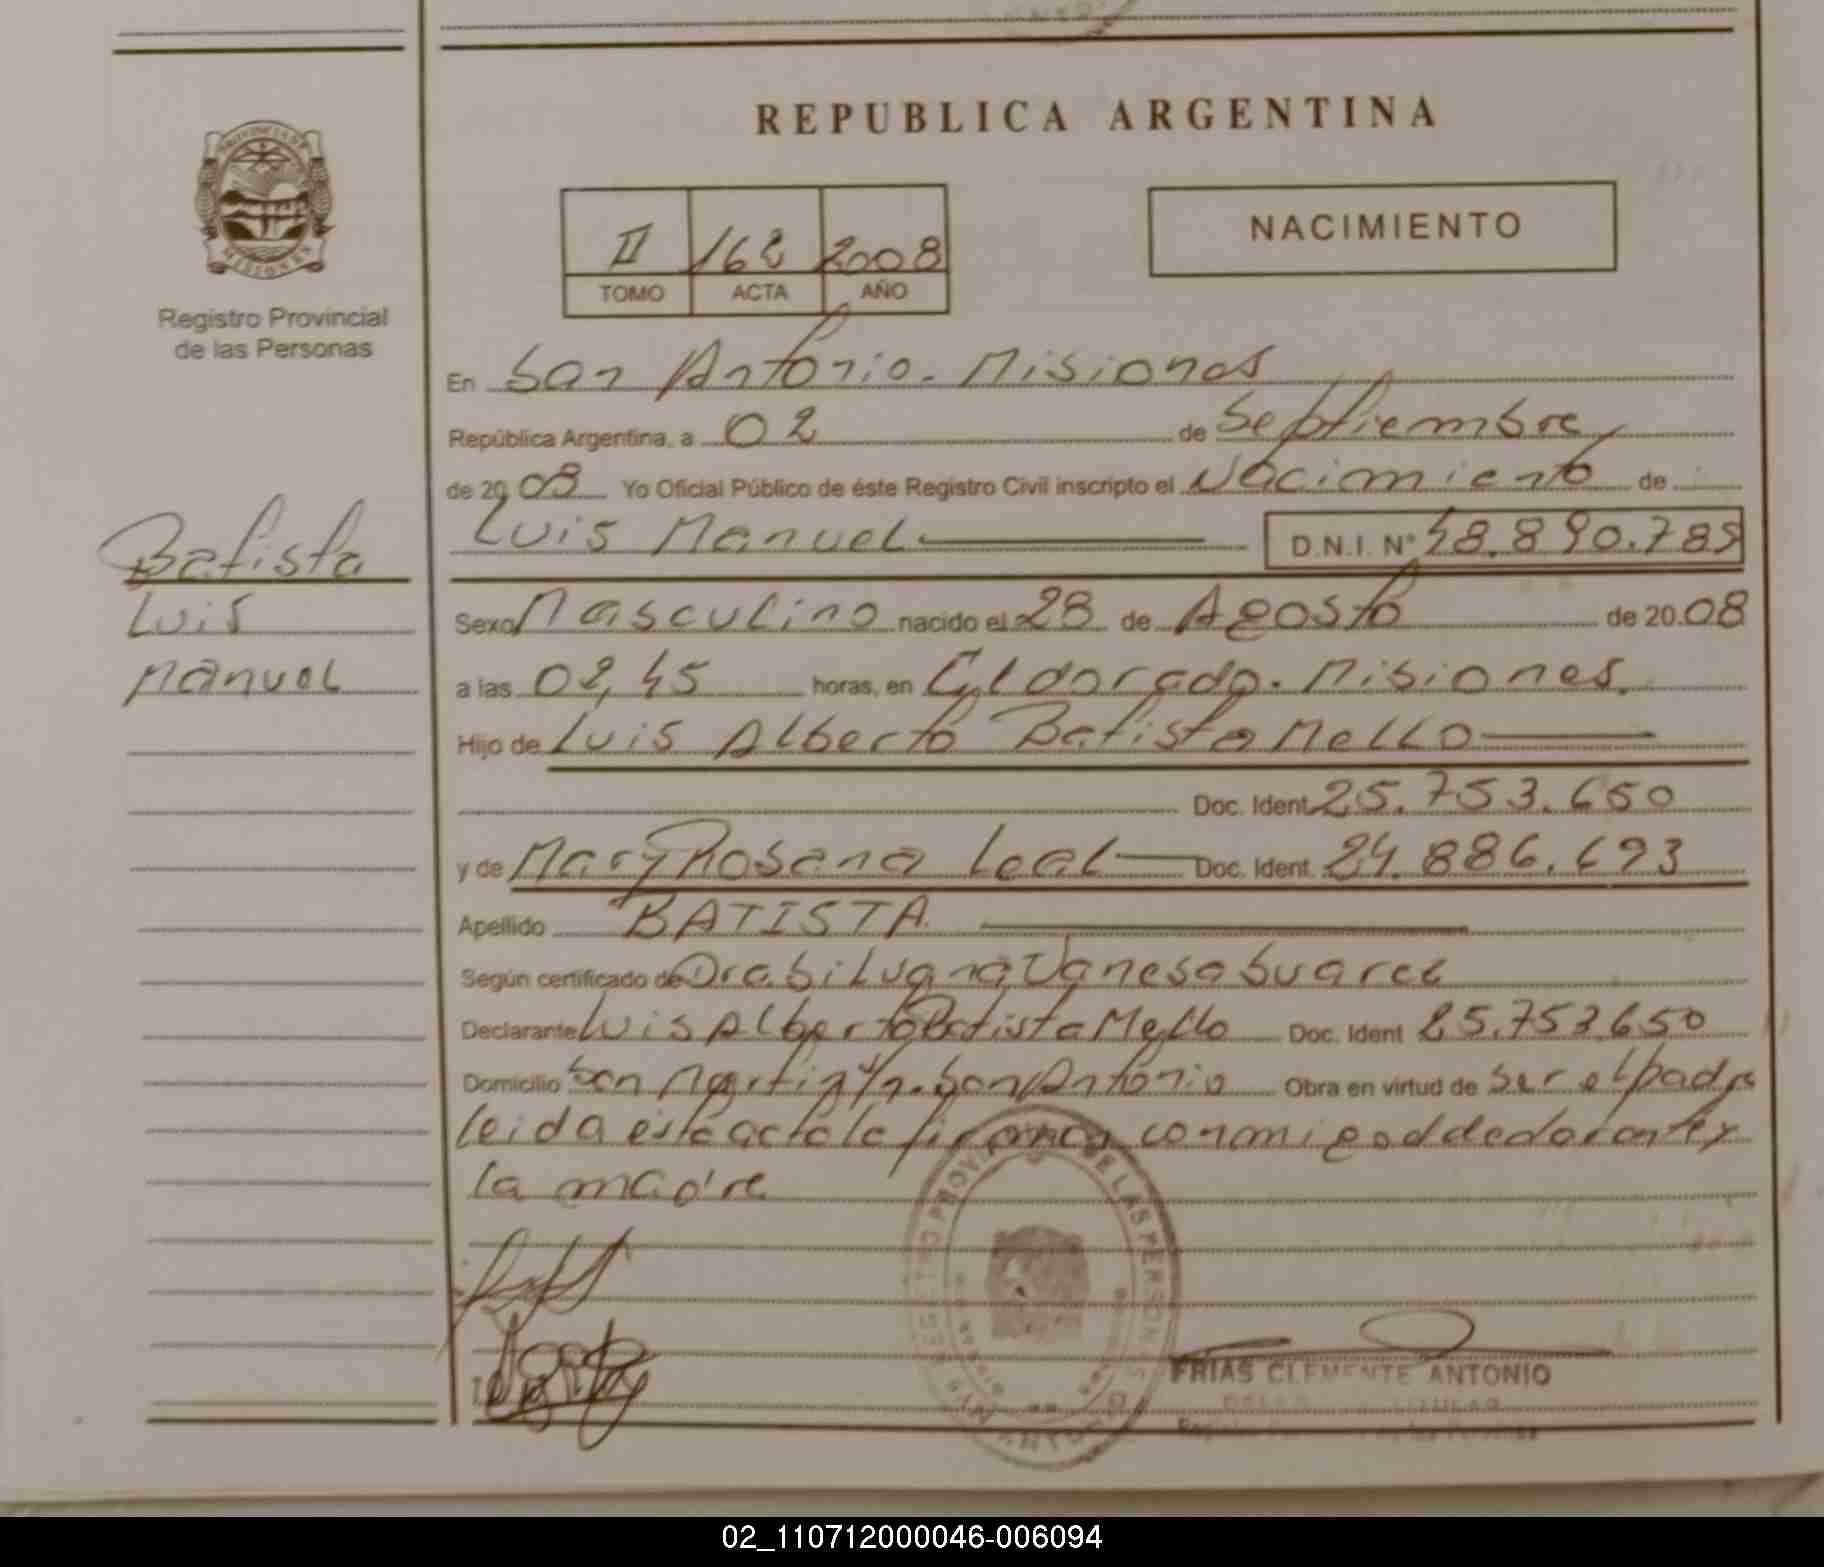 REPUBLICA ARGENTINA
PROVINCIA DE
MISIONES
Registro Provincial
de las Personas
NACIMIENTO
II 162 2008
TOMO ACTA AÑO
En San Antonio. Misiones
República Argentina, a 02 de Septiembre
de 2008 Yo Oficial Público de éste Registro Civil inscripto el Nacimiento de
Luis Manuel D.N.I. Nº 48.890.789
Batista
Luis
Manuel
Sexo Masculino nacido el 28 de Agosto de 2008
a las 02,45 horas, en Eldorado. Misiones.
Hijo de Luis Alberto Batista Mello
Doc. Ident. 25.753.650
y de Mary Rosana Leal Doc. Ident. 24.886.693
Apellido BATISTA
Según certificado de Dra. Silvana Vanesa Suarez
Declarante Luis Alberto Batista Mello Doc. Ident 25.753.650
Domicilio San Martin s/n. San Antonio Obra en virtud de ser el padre
leida este acta la firman conmigo el declarante y
la madre
REGISTRO PROVINCIAL DE LAS PERSONAS
FRIAS CLEMENTE ANTONIO
02_110712000046-006094